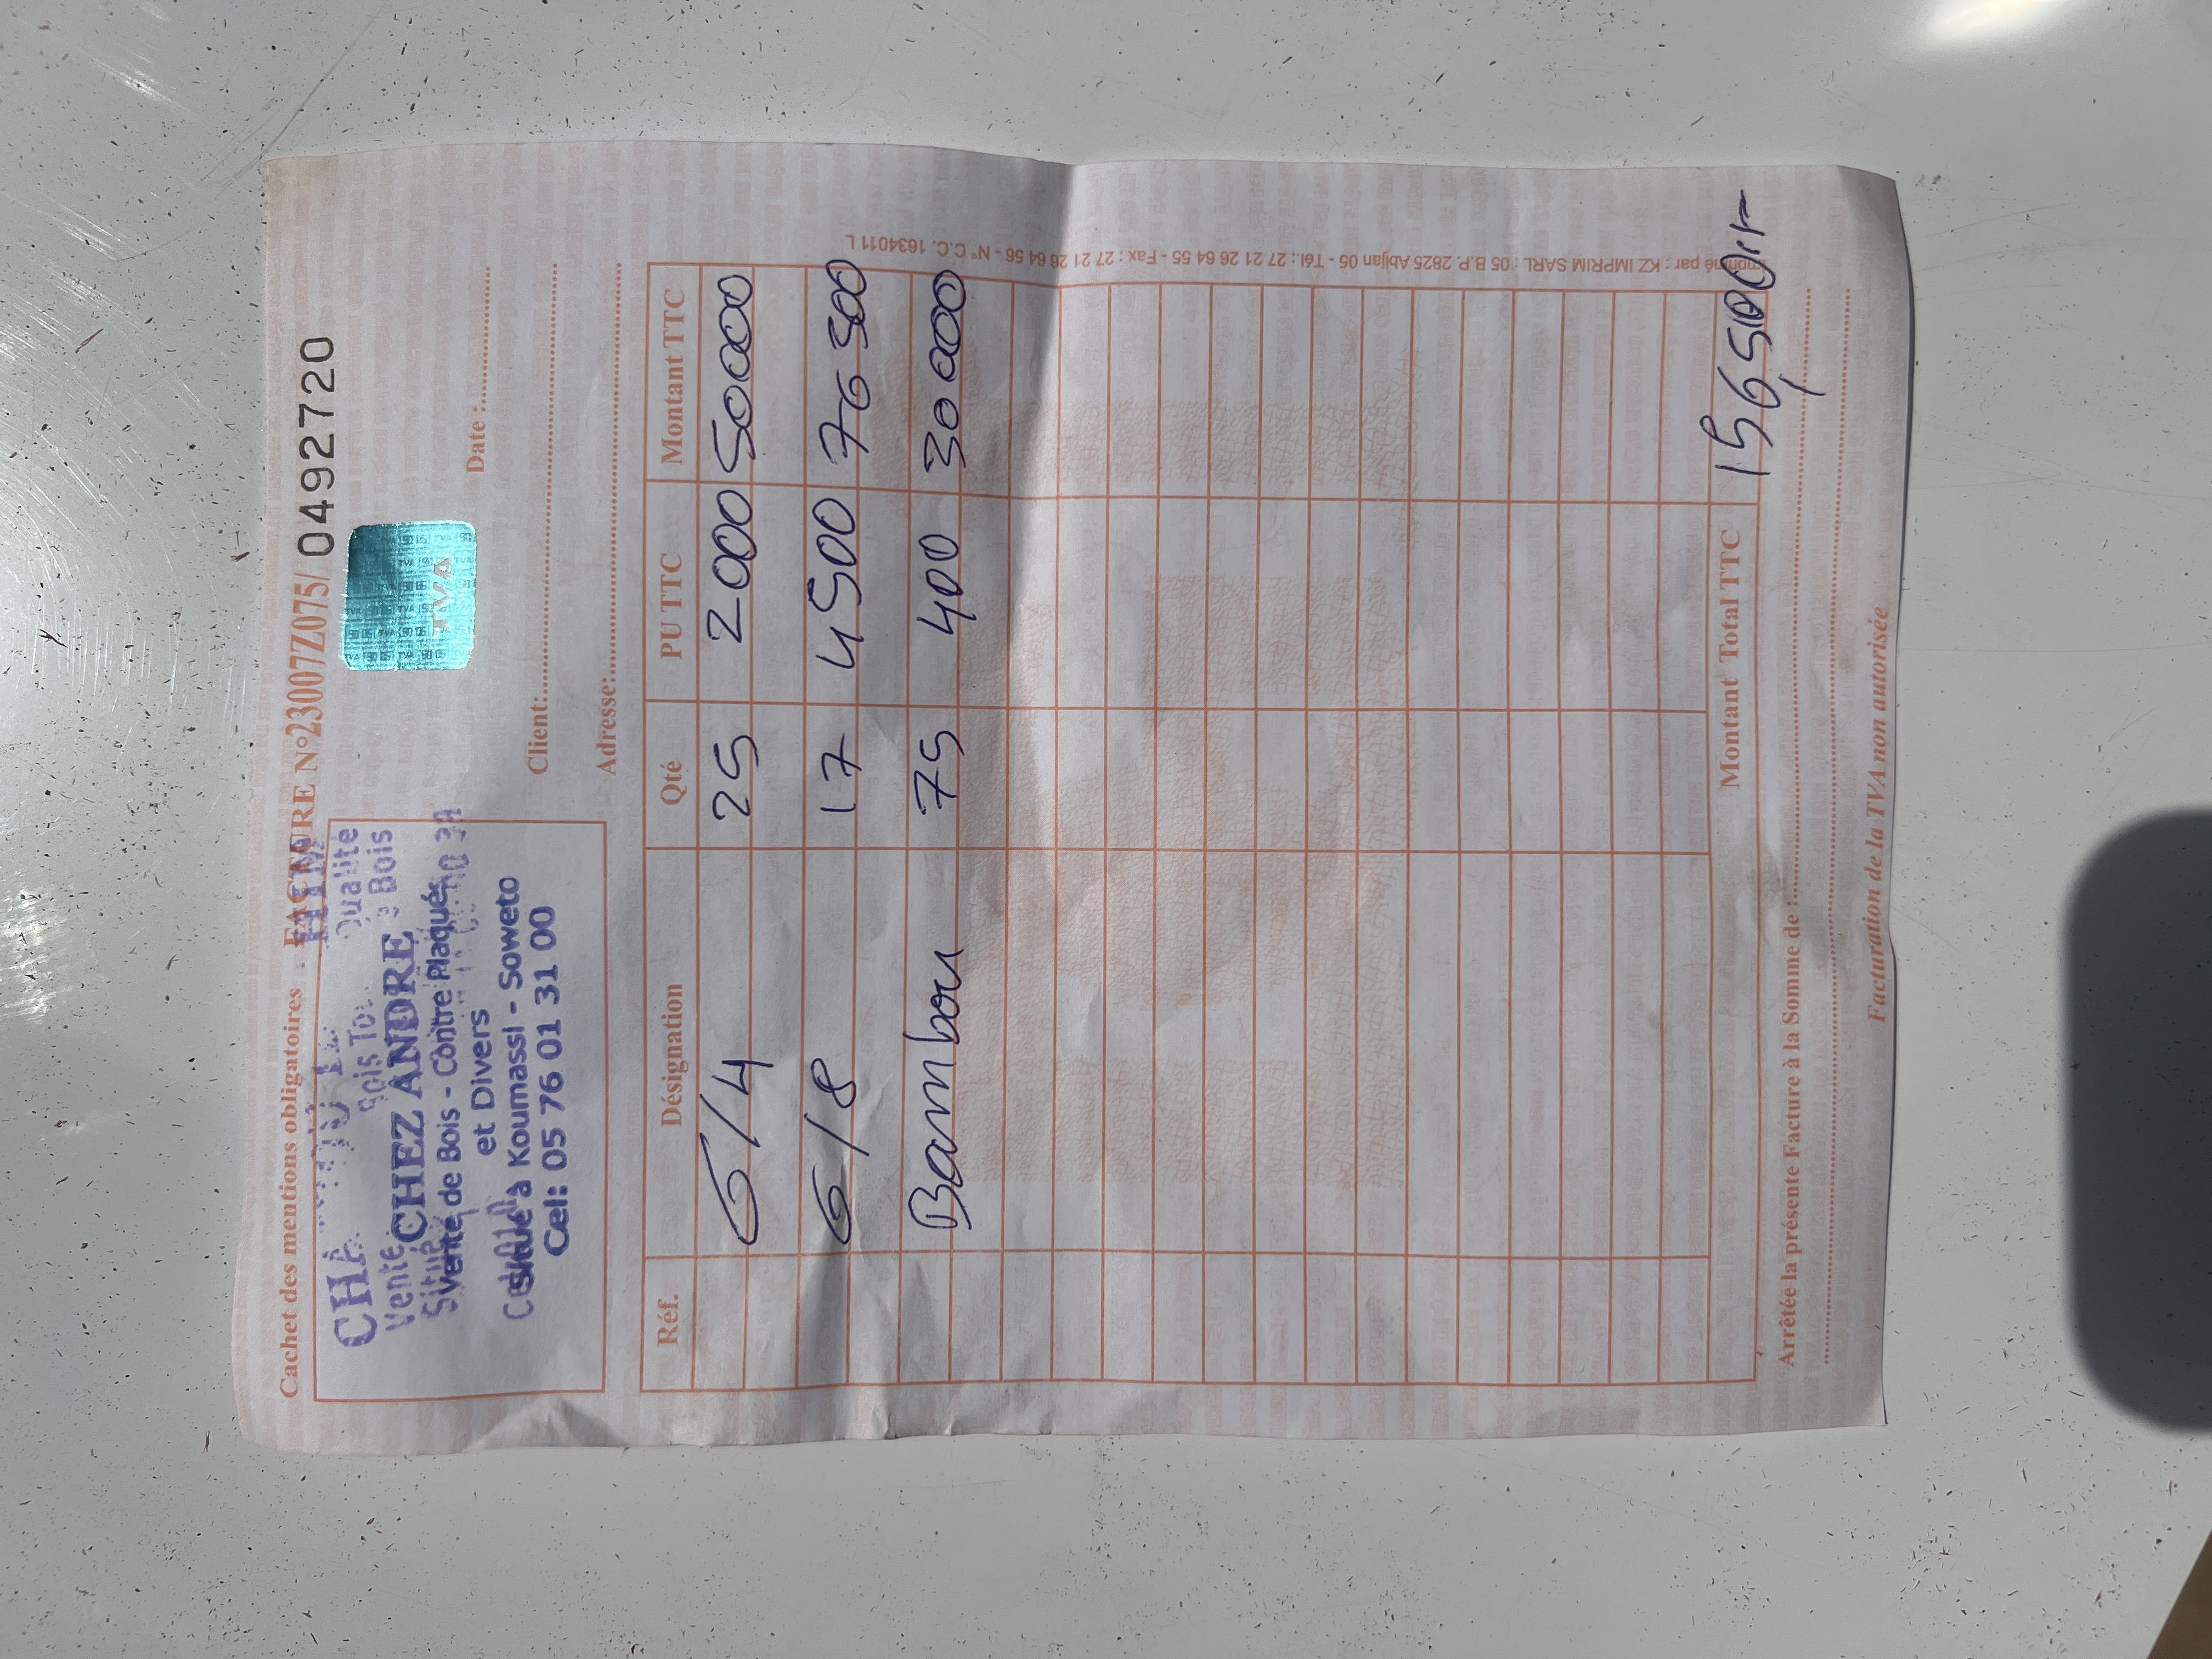 Cachet des mentions obligatoires
FACTURE N°23007Z075/ 0492720
Vente Bois Qualité
Bois
CHEZ ANDRE
Vente de Bois - Contre Plaqués
et Divers
Situé à Koumassi - Soweto
Cel: 05 76 01 31 00
TVA
Date :
Client:
Adresse:
Réf. Désignation Qté PU TTC Montant TTC
6/4 25 2000 50000
6/8 17 4500 76500
Bambou 75 400 30000
Montant Total TTC 156500
Arrêtée la présente Facture à la Somme de :
Facturation de la TVA non autorisée
KZ IMPRIM SARL : 05 B.P. 2825 Abijan 05 - Tél.: 27 21 26 64 55 - Fax : 27 21 26 64 56 - N° C.C. 1634011 L